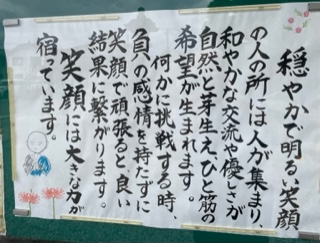 穏やかで明るい笑顔
の人の所には人が集まり、
和やかな交流や優しさが
自然と芽生え、ひと筋の
希望が生まれます。
何かに挑戦する時、
負の感情を持たずに
笑顔で頑張ると良い
結果に繋がります。
笑顔には大きな力が
宿っています。